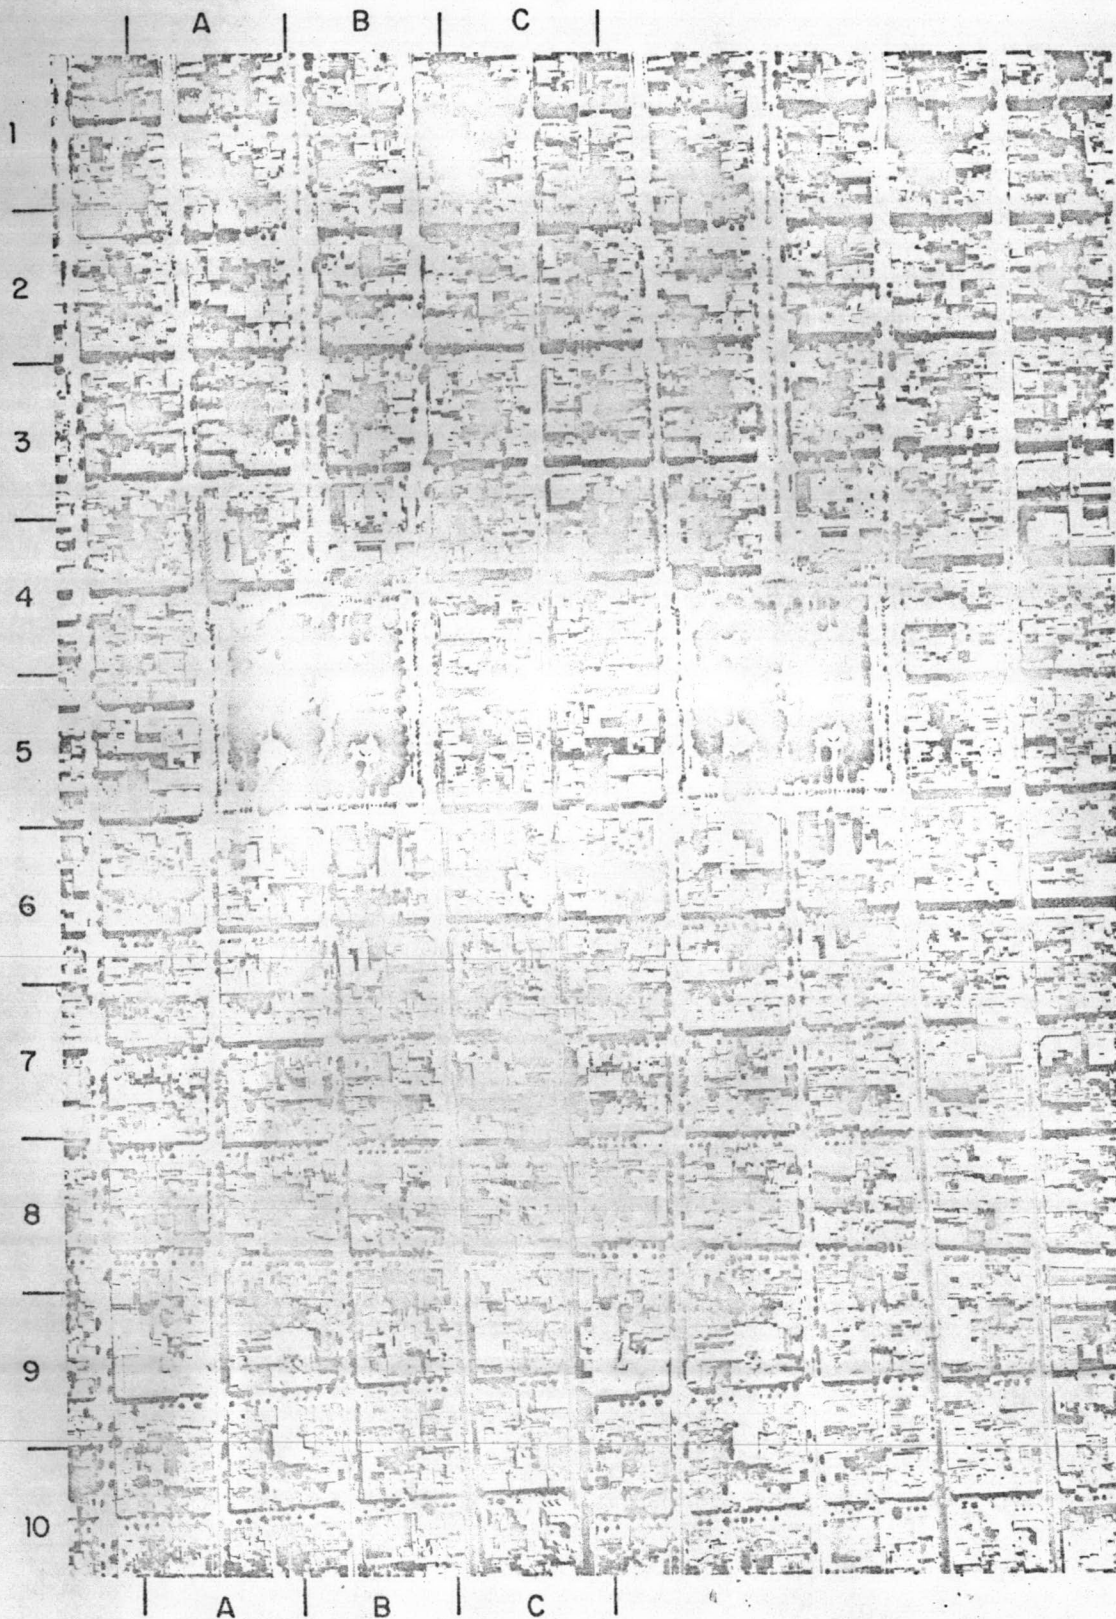 A B C
1
2
3
4
5
6
7
8
9
10
A B C